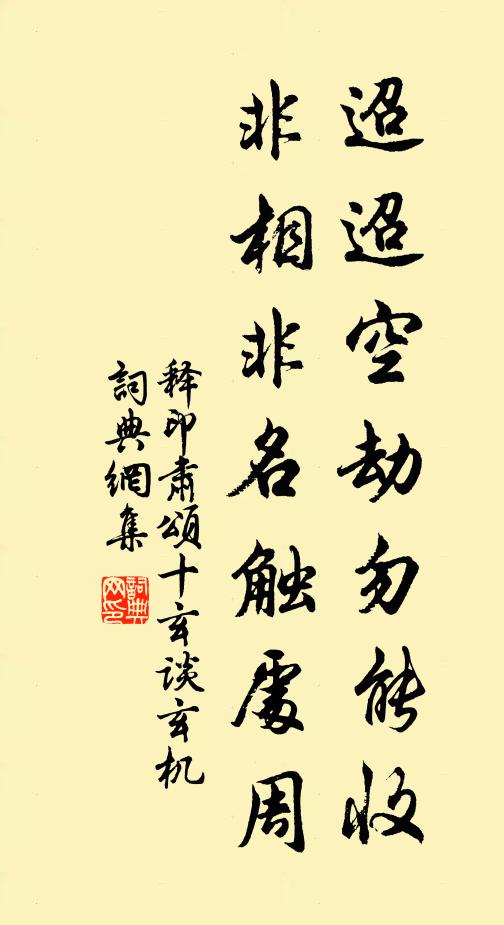 迢迢空劫勿能收
非相非名触處周
释印肃頌十玄谈玄机
詞典網集